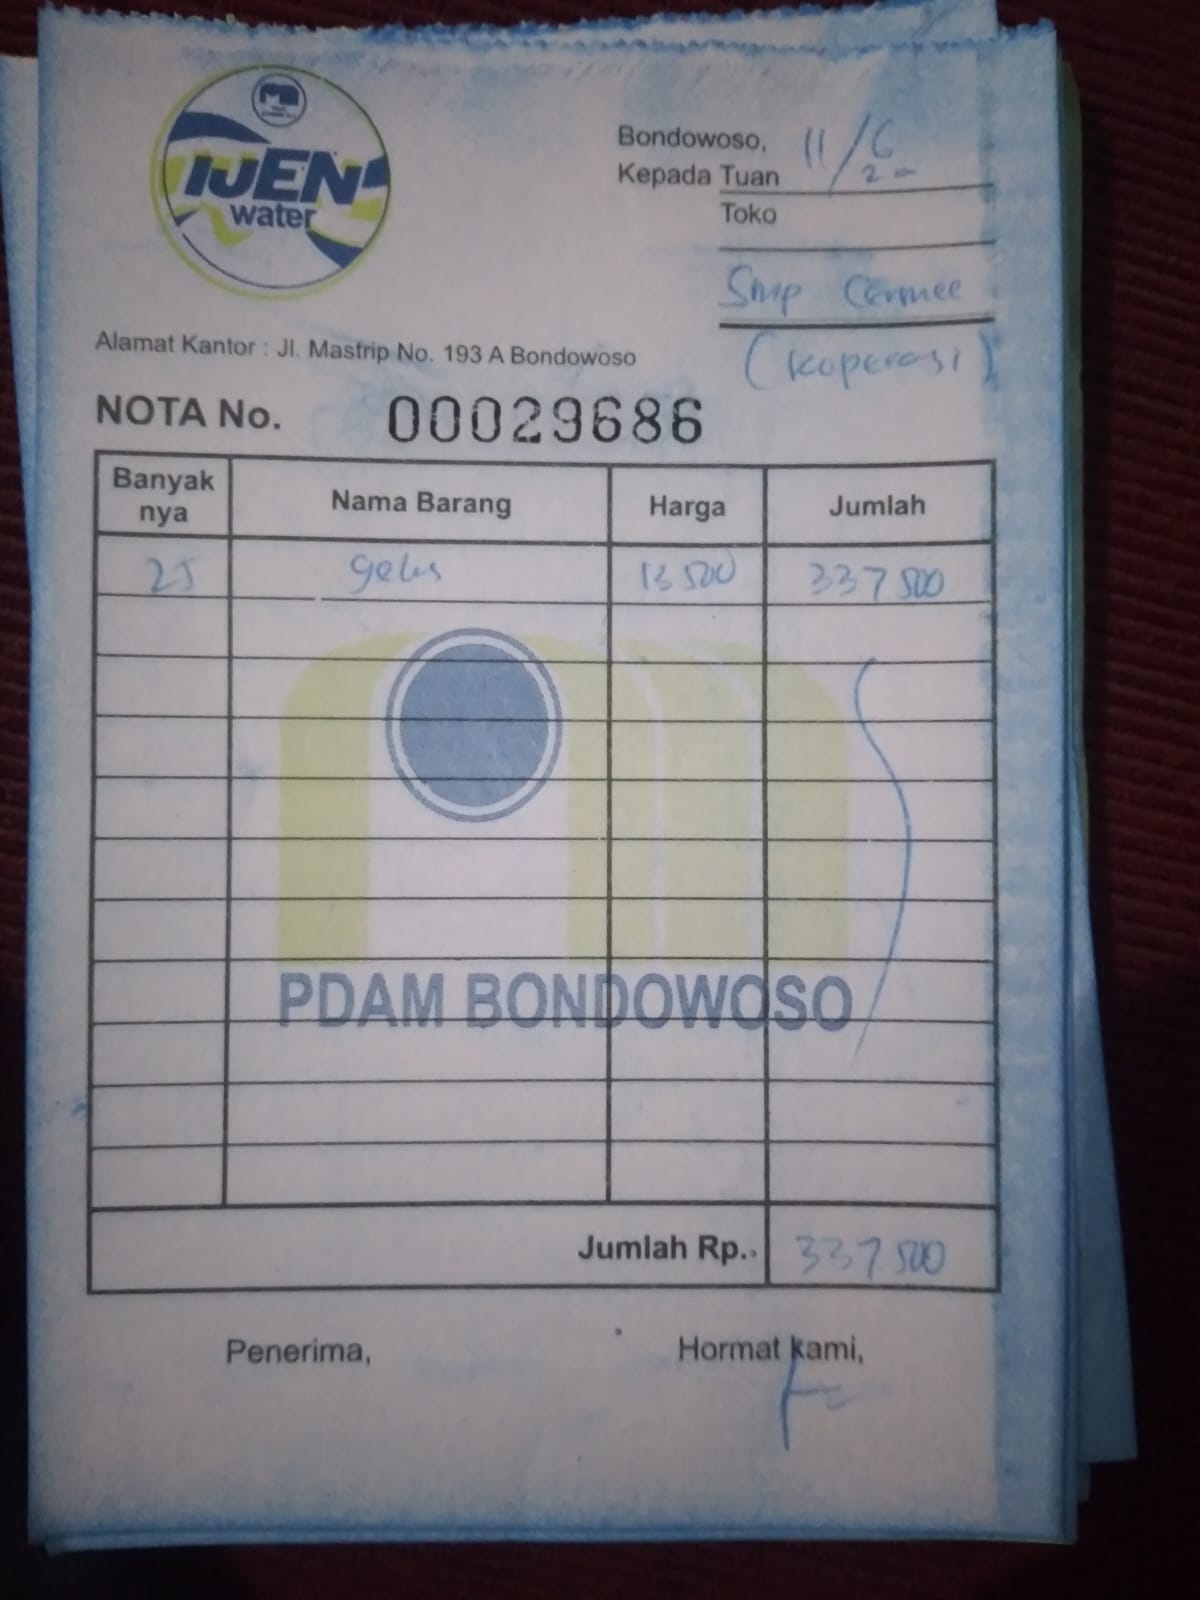 IJEN
water
Bondowoso, 11/6
20
Kepada Tuan
Toko
Smp Cermee
(koperasi)
Alamat Kantor : Jl. Mastrip No. 193 A Bondowoso
NOTA No. 00029686
Banyak nya Nama Barang Harga Jumlah
25 gelas 13 500 337 500
PDAM BONDOWOSO
Jumlah Rp. 337.500
Penerima, Hormat kami,